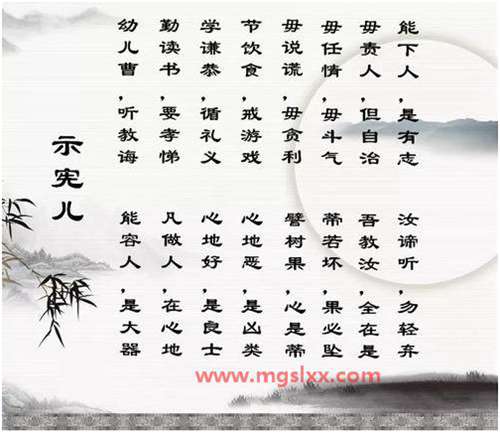 示宪儿
幼儿曹，听教诲
勤读书，要孝悌
学谦恭，循礼义
节饮食，戒游戏
毋说谎，毋贪利
毋任情，毋斗气
毋责人，但自治
能下人，是有志
能容人，是大器
凡做人，在心地
心地好，是良士
心地恶，是凶类
譬树果，心是蒂
蒂若坏，果必坠
吾教汝，全在是
汝谛听，勿轻弃
www.mgslxx.com